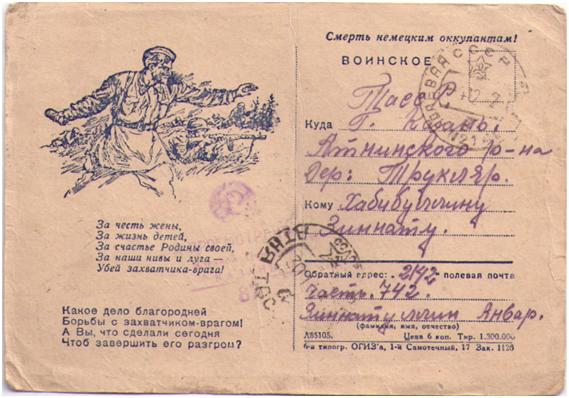 За честь жены,
За жизнь детей,
За счастье Родины своей,
За наши нивы и луга —
Убей захватчика-врага!
Какое дело благородней
Борьбы с захватчиком-врагом!
А Вы, что сделали сегодня
Чтоб завершить его разгром?
Смерть немецким оккупантам!
ВОИНСКОЕ
СССР
Куда
Тасср.
г. Казань.
Атнинского р-на
Дер:
Кому
Хабибуллину
Зиннату.
Обратный адрес: 2142 полевая почта
Часть. 742.
Зиннатуллин Анвар.
(фамилия, имя, отчество)
Л85105. Цена 6 коп. Тир. 1.300.000
6-я типогр. ОГИЗ'а, 1-й Самотечный, 17 Зак. 1126